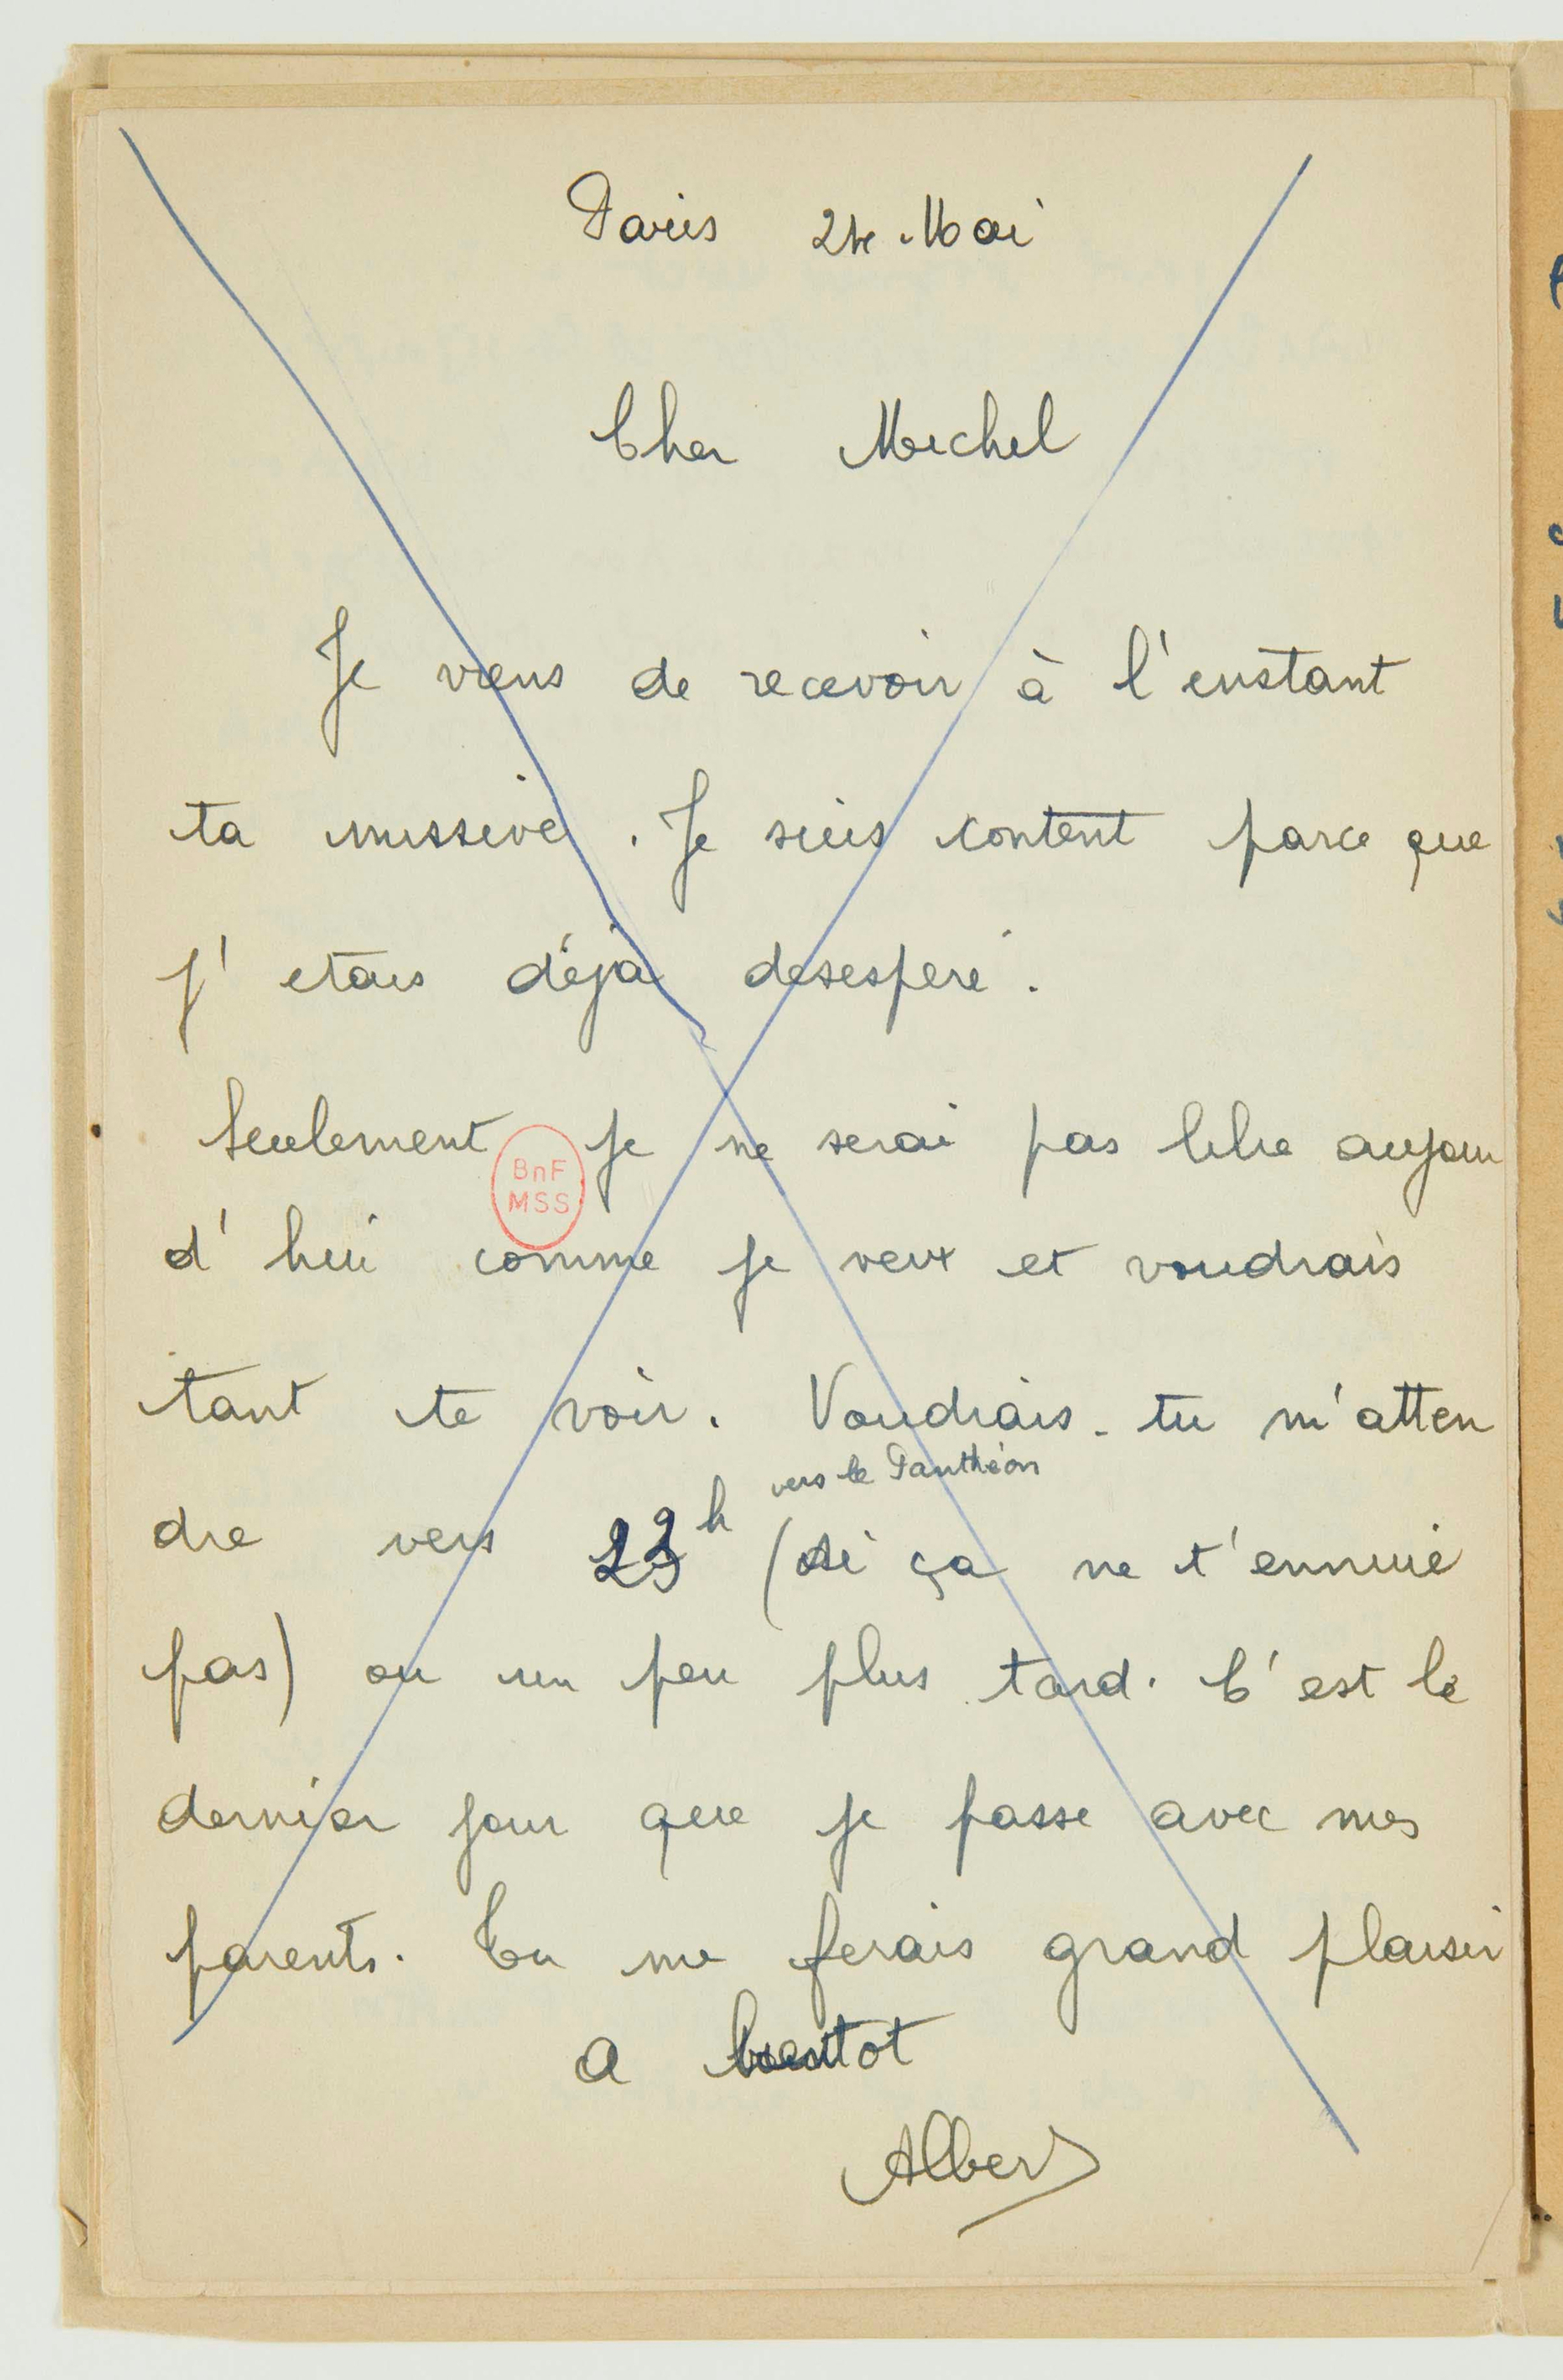 Paris 24 Mai
Cher Michel
Je viens de recevoir à l'instant
ta missive. Je suis content parce que
j'etais déjà desesperé.
Seulement je ne serai pas libre aujour
BnF
MSS
d'hui comme je veux et voudrais
tant te voir. Voudrais-tu m'atten
vers le Panthéon
dre vers h (si ça ne t'ennuie
pas) ou un peu plus tard. C'est le
dernier jour que je passe avec mes
parents. Tu me ferais grand plaisir
a bientot
Albert